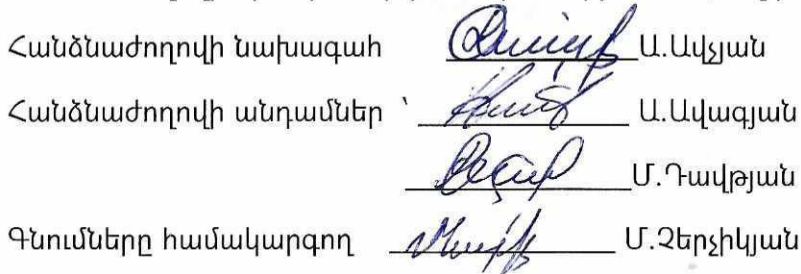 Հանձնաժողովի նախագահ Ա.Ավչյան
Հանձնաժողովի անդամներ ՝ Ա.Ավագյան
Մ.Դավթյան
Գնումները համակարգող Մ.Չերչիկյան